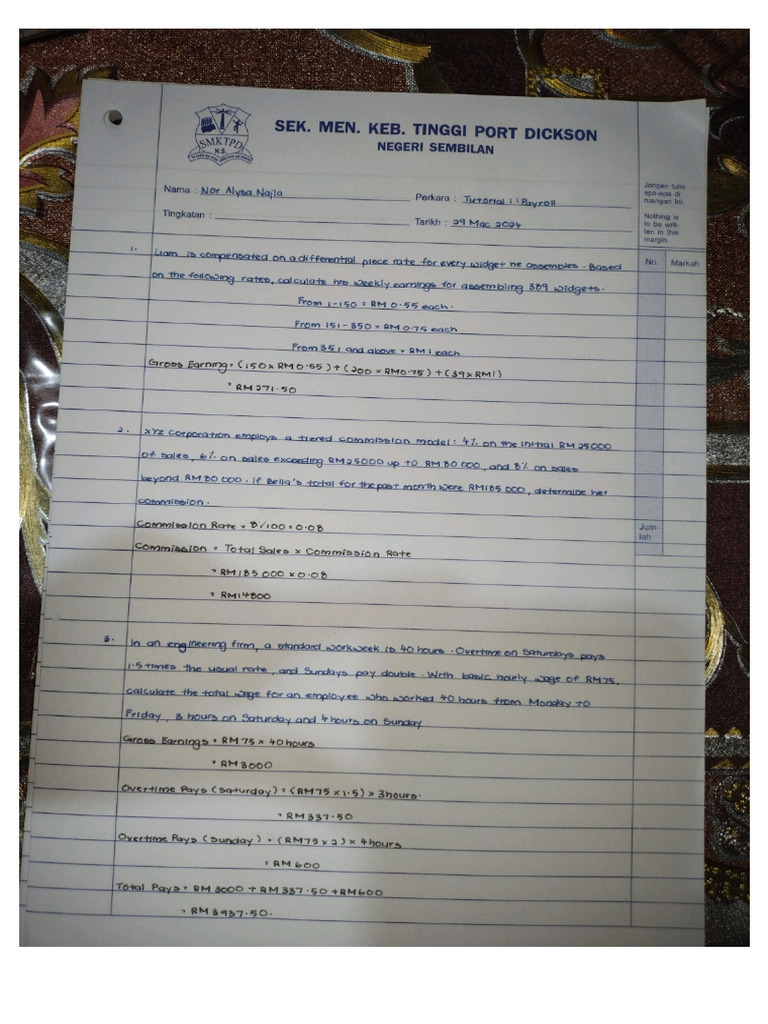 SEK. MEN. KEB. TINGGI PORT DICKSON
NEGERI SEMBILAN
SMKTPD
N.S.
Nama : Nor Alysa Najla
Perkara : Tutorial 1 : Payroll
Tingkatan :
Tarikh : 29 Mac 2024
Jangan tulis
apa-apa di
ruangan ini.
Nothing is
to be writ-
ten in this
margin.
No. Markah
1. Liam is compensated on a differential piece rate for every widget he assembles. Based
on the following rates, calculate his weekly earnings for assembling 389 widgets.
From 1-150 = RM 0.55 each.
From 151-350 = RM 0.75 each
From 351 and above = RM 1 each
Gross Earning = (150 x RM 0.55) + (200 x RM0.75) + (39 x RM1)
= RM 271.50
2. XYZ Corporation employs a tiered commission model : 4% on the initial RM 25000
of sales, 6% on sales exceeding RM25000 up to RM 80 000, and 8% on sales
beyond RM 80 000. If Bella's total for the past month were RM185 000, determine her
commission.
Commission Rate = 8/100 = 0.08
Jum-
lah
Commission = Total Sales x Commission Rate
= RM 185 000 x 0.08
= RM14800
3. In an engineering firm, a standard workweek is 40 hours. Overtime on Saturdays pays
1.5 times the usual rate, and Sundays pay double. With basic hourly wage of RM75,
calculate the total wage for an employee who worked 40 hours from Monday to
Friday, 3 hours on Saturday and 4 hours on Sunday
Gross Earnings = RM 75 x 40 hours
= RM 3000
Overtime Pays (Saturday) = (RM 75 x 1.5) x 3 hours.
= RM 337.50
Overtime Pays (Sunday) = (RM75 x 2) x 4 hours
= RM 600
Total Pays = RM 3000 + RM 337.50 + RM600
= RM 3937.50.